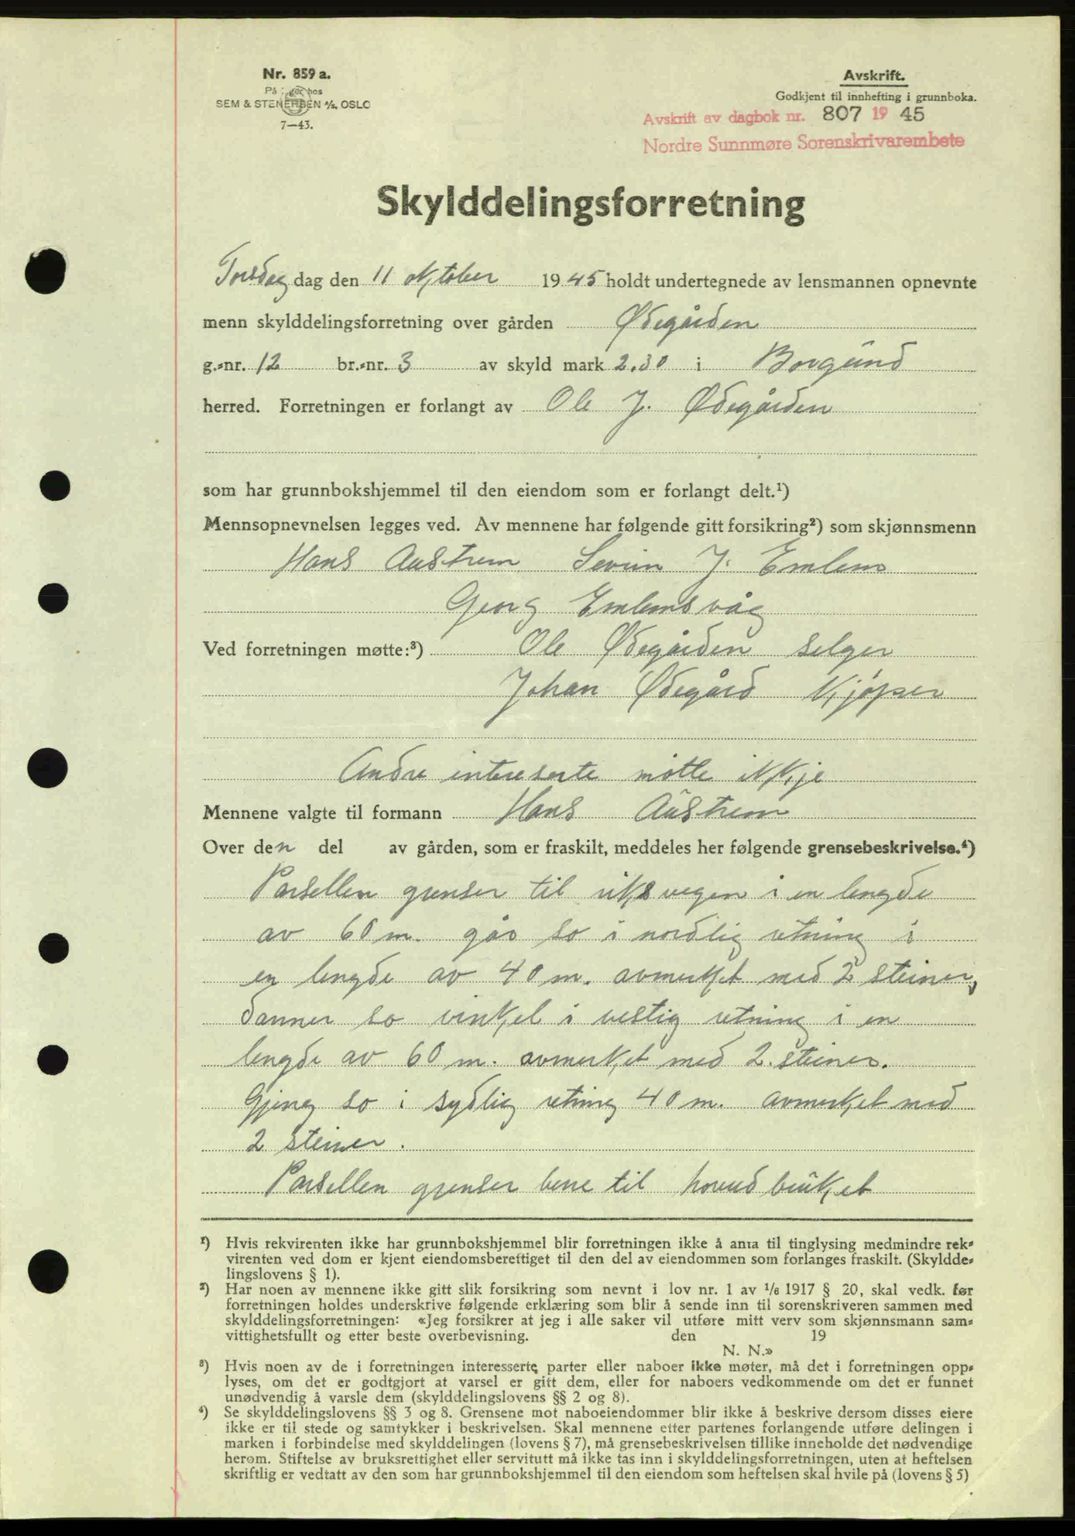 Nr. 859 a.
SEM & STENERSEN A/S, OSLO
7—43.
Avskrift.
Godkjent til innhefting i grunnboka.
Avskrift av dagbok nr. 807 1945
Nordre Sunnmøre Sorenskrivarembete
Skylddelingsforretning
Torsdag dag den 11 oktober 1945 holdt undertegnede av lensmannen opnevnte
menn skylddelingsforretning over gården Ødegården
g.-nr. 12 br.-nr. 3 av skyld mark 2.30 i Borgund
herred. Forretningen er forlangt av Ole J. Ødegården
som har grunnbokshjemmel til den eiendom som er forlangt delt.¹)
Mennsopnevnelsen legges ved. Av mennene har følgende gitt forsikring²) som skjønnsmenn
Hans Austrem Severin J. Emlem
Georg Emlemsvåg
Ved forretningen møtte:³) Ole Ødegården selger
Johan Ødegård kjøper
Andre intereserte møtte ikkje
Mennene valgte til formann Hans Austrem
Over den del av gården, som er fraskilt, meddeles her følgende grensebeskrivelse.⁴)
Parsellen grenser til riksvegen i en lengde
av 60 m. går so i nordlig retning i
en lengde av 40 m. avmerket med 2 steiner,
danner so vinkel i vestig retning i en
lengde av 60 m. avmerket med 2. steiner.
Gjeng so i sydlig retning 40 m. avmerket med
2 steiner.
Parsellen grenser bere til hovudbruket
¹) Hvis rekvirenten ikke har grunnbokshjemmel blir forretningen ikke å anta til tinglysing medmindre rek-
virenten ved dom er kjent eiendomsberettiget til den del av eiendommen som forlanges fraskilt. (Skyldde-
lingslovens § 1).
²) Har noen av mennene ikke gitt slik forsikring som nevnt i lov nr. 1 av 1/6 1917 § 20, skal vedk. før
forretningen holdes underskrive følgende erklæring som blir å sende inn til sorenskriveren sammen med
skylddelingsforretningen: «Jeg forsikrer at jeg i alle saker vil utføre mitt verv som skjønnsmann sam-
vittighetsfullt og etter beste overbevisning. den 19
N. N.»
³) Hvis noen av de i forretningen interesserte parter eller naboer ikke møter, må det i forretningen opp-
lyses, om det er godtgjort at varsel er gitt dem, eller for naboers vedkommende om det er funnet
unødvendig å varsle dem (skylddelingslovens §§ 2 og 8).
⁴) Se skylddelingslovens §§ 3 og 8. Grensene mot naboeiendommer blir ikke å beskrive dersom disses eiere
ikke er til stede og samtykker i beskrivelsen. Skal mennene etter partenes forlangende utføre delingen i
marken i forbindelse med skylddelingen (lovens § 7), må grensebeskrivelsen tillike inneholde det nødvendige
herom. Stiftelse av bruksrettighet eller servitutt må ikke tas inn i skylddelingsforretningen, uten at heftelsen
skriftlig er vedtatt av den som har grunnbokshjemmel til den eiendom som heftelsen skal hvile på (lovens § 5)